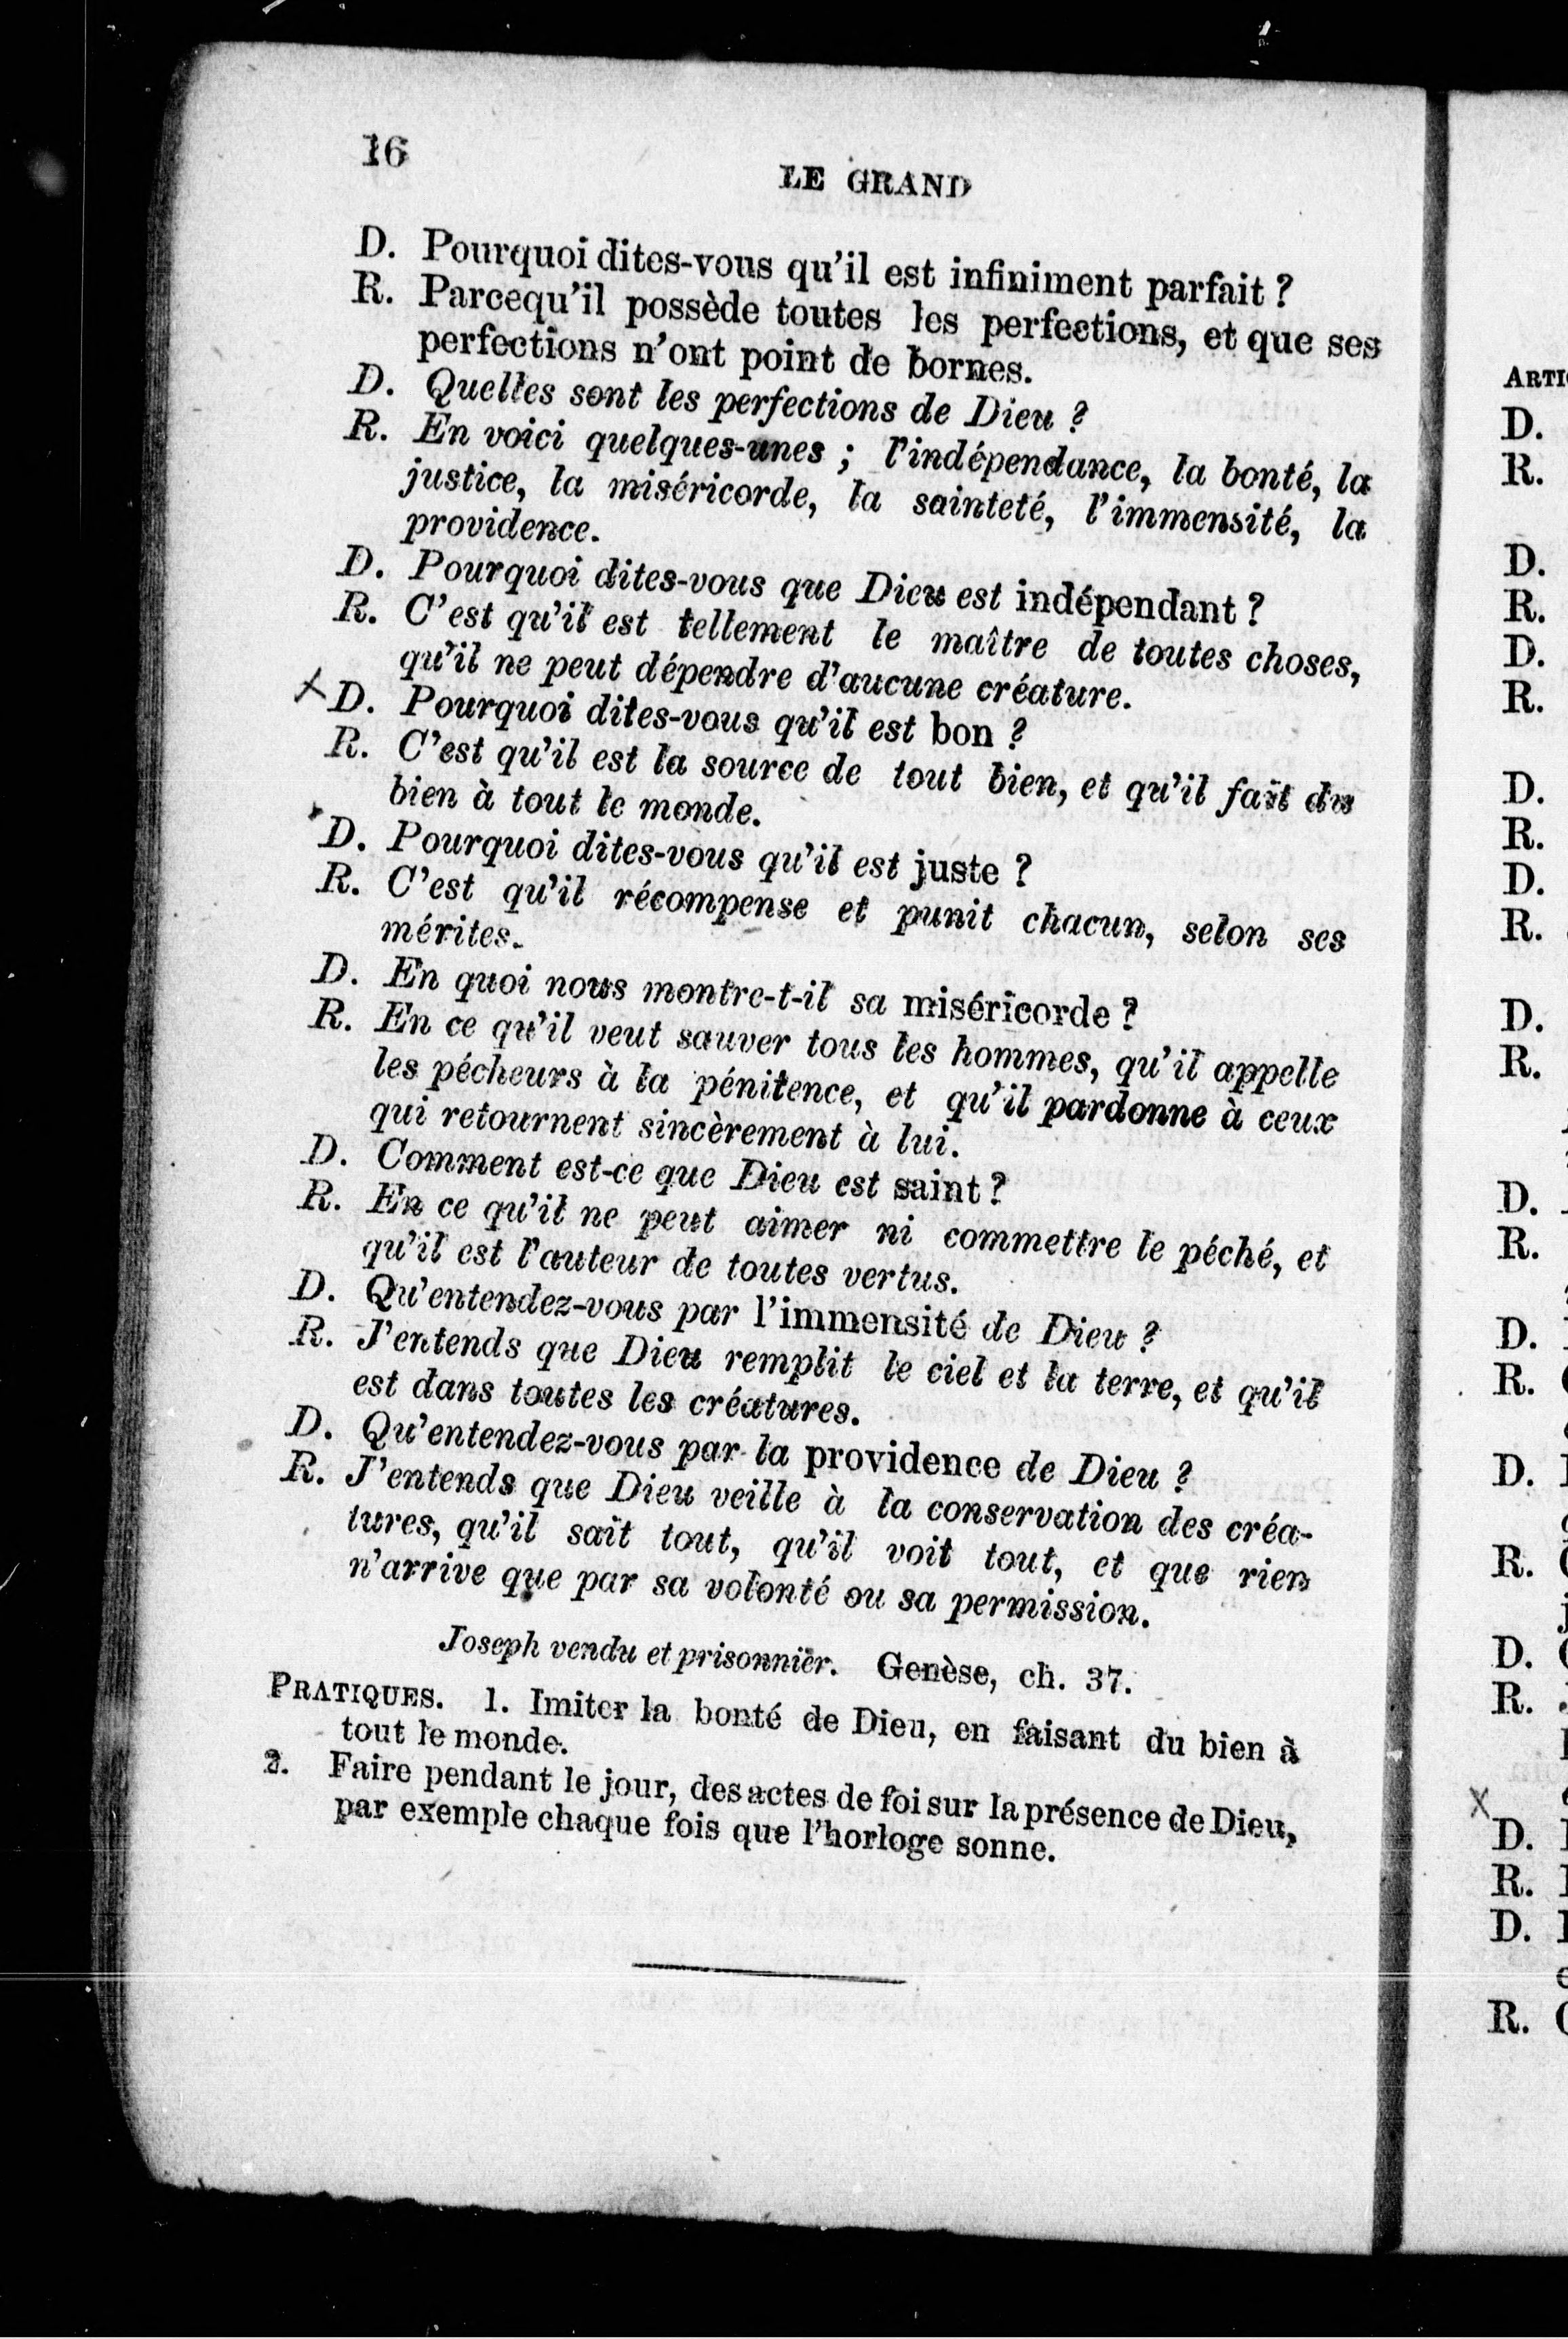 16
LE GRAND
D. Pourquoi dites-vous qu'il est infiniment parfait ?
R. Parcequ'il possède toutes les perfections, et que ses
perfections n'ont point de bornes.
D. Quelles sont les perfections de Dieu ?
R. En voici quelques-unes ; l'indépendance, la bonté, la
justice, la miséricorde, la sainteté, l'immensité, la
providence.
D. Pourquoi dites-vous que Dieu est indépendant ?
R. C'est qu'il est tellement le maître de toutes choses,
qu'il ne peut dépendre d'aucune créature.
D. Pourquoi dites-vous qu'il est bon ?
R. C'est qu'il est la source de tout bien, et qu'il fait du
bien à tout le monde.
D. Pourquoi dites-vous qu'il est juste ?
R. C'est qu'il récompense et punit chacun, selon ses
mérites.
D. En quoi nous montre-t-il sa miséricorde ?
R. En ce qu'il veut sauver tous les hommes, qu'il appelle
les pécheurs à la pénitence, et qu'il pardonne à ceux
qui retournent sincèrement à lui.
D. Comment est-ce que Dieu est saint ?
R. En ce qu'il ne peut aimer ni commettre le péché, et
qu'il est l'auteur de toutes vertus.
D. Qu'entendez-vous par l'immensité de Dieu ?
R. J'entends que Dieu remplit le ciel et la terre, et qu'il
est dans toutes les créatures.
D. Qu'entendez-vous par la providence de Dieu ?
R. J'entends que Dieu veille à la conservation des créa-
tures, qu'il sait tout, qu'il voit tout, et que rien
n'arrive que par sa volonté ou sa permission.
Joseph vendu et prisonnier. Genèse, ch. 37.
PRATIQUES. 1. Imiter la bonté de Dieu, en faisant du bien à
tout le monde.
2. Faire pendant le jour, des actes de foi sur la présence de Dieu,
par exemple chaque fois que l'horloge sonne.
ARTI
D.
R.
D.
R.
D.
R.
D.
R.
D.
R.
D.
R.
D.
R.
D.
R.
D.
R.
D.
R.
D.
R.
D.
R.